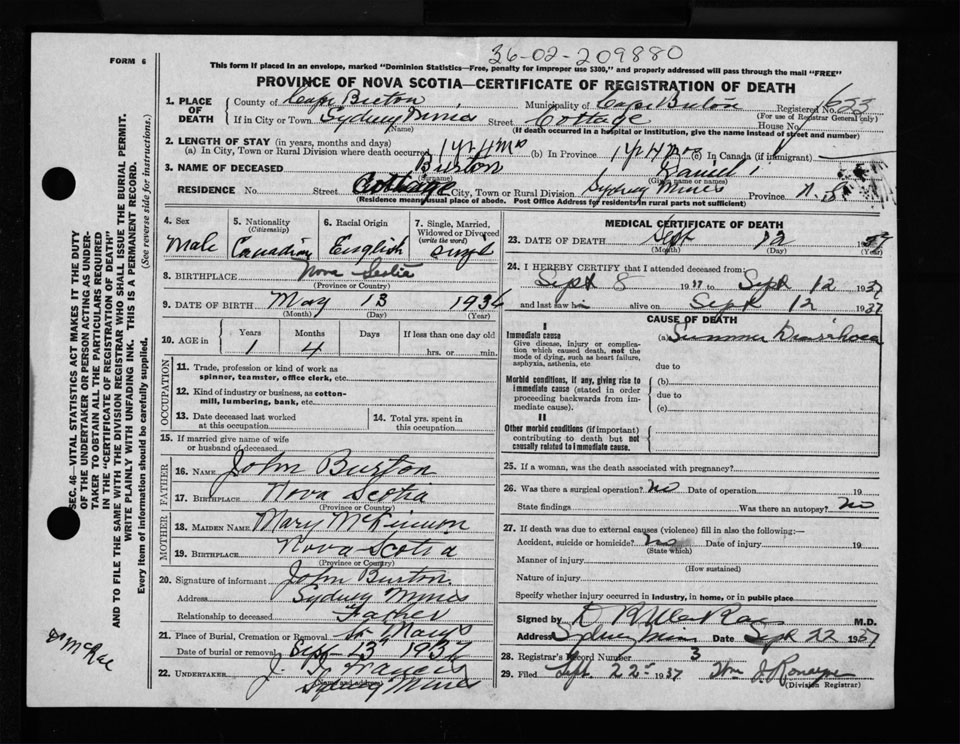 36-02-209880
FORM 6
This form if placed in an envelope, marked "Dominion Statistics—Free, penalty for improper use $300," and properly addressed will pass through the mail "FREE"
PROVINCE OF NOVA SCOTIA—CERTIFICATE OF REGISTRATION OF DEATH
1. PLACE OF DEATH
County of Cape Breton Municipality of Cape Breton Registered No. 623
(For use of Registrar General only)
If in City or Town Sydney Mines Street Cottage House No.
(Name) (If death occurred in a hospital or institution, give name instead of street and number)
2. LENGTH OF STAY (in years, months and days)
(a) In City, Town or Rural Division where death occurred 1 Yr 4 Mos (b) In Province 1 Yr 4 Mos (c) In Canada (if immigrant)
3. NAME OF DECEASED Burton David
(Surname) (Given name or names)
RESIDENCE No. Street Cottage City, Town or Rural Division Sydney Mines Province N.S.
(Residence means usual place of abode. Post Office Address for residents in rural parts not sufficient)
4. Sex
Male
5. Nationality
(Citizenship)
Canadian
6. Racial Origin
English
7. Single, Married, Widowed or Divorced
(write the word)
Singl
8. BIRTHPLACE Nova Scotia
(Province or Country)
9. DATE OF BIRTH May 13 1936
(Month) (Day) (Year)
10. AGE in
Years Months Days If less than one day old
1 4 hrs. or min.
OCCUPATION
11. Trade, profession or kind of work as
spinner, teamster, office clerk, etc.
12. Kind of industry or business, as cotton-
mill, lumbering, bank, etc.
13. Date deceased last worked
at this occupation
14. Total yrs. spent in
this occupation
15. If married give name of wife
or husband of deceased
FATHER
16. NAME John Burton
17. BIRTHPLACE Nova Scotia
(Province or Country)
MOTHER
18. MAIDEN NAME Mary McKinnon
19. BIRTHPLACE Nova Scotia
(Province or Country)
20. Signature of informant John Burton.
Address Sydney Mines
Relationship to deceased Father
21. Place of Burial, Cremation or Removal St. Mary's
Date of burial or removal Sept 13 1937
22. UNDERTAKER J. Francis
(Name and address)
Sydney Mines
MEDICAL CERTIFICATE OF DEATH
23. DATE OF DEATH Sept 12 1937
(Month) (Day) (Year)
24. I HEREBY CERTIFY that I attended deceased from:
Sept 8 1937 to Sept 12 1937
and last saw him alive on Sept 12 1937
CAUSE OF DEATH
I
Immediate cause
Give disease, injury or complica-
tion which caused death, not the
mode of dying, such as heart failure,
asphyxia, asthenia, etc
(a) Summer Diarrhoea
due to
Morbid conditions, if any, giving rise to
immediate cause (stated in order
proceeding backwards from im-
mediate cause).
(b)
due to
(c)
II
Other morbid conditions (if important)
contributing to death but not
causally related to immediate cause.
25. If a woman, was the death associated with pregnancy?
26. Was there a surgical operation? No Date of operation 19
State findings Was there an autopsy? No
27. If death was due to external causes (violence) fill in also the following:—
Accident, suicide or homicide? No Date of injury 19
(State which)
Manner of injury
(How sustained)
Nature of injury
Specify whether injury occurred in industry, in home, or in public place
Signed by M.D.
Address Sydney Mines Date Sept 22 1937
28. Registrar's Record Number 3
29. Filed Sept. 22 1937 Wm J.
(Division Registrar)
SEC. 46—VITAL STATISTICS ACT MAKES IT THE DUTY
OF THE UNDERTAKER OR PERSON ACTING AS UNDER-
TAKER TO OBTAIN ALL THE PARTICULARS REQUIRED
IN THE "CERTIFICATE OF REGISTRATION OF DEATH"
AND TO FILE THE SAME WITH THE DIVISION REGISTRAR WHO SHALL ISSUE THE BURIAL PERMIT.
WRITE PLAINLY WITH UNFADING INK. THIS IS A PERMANENT RECORD.
Every item of information should be carefully supplied. (See reverse side for instructions.)
Dr McRae